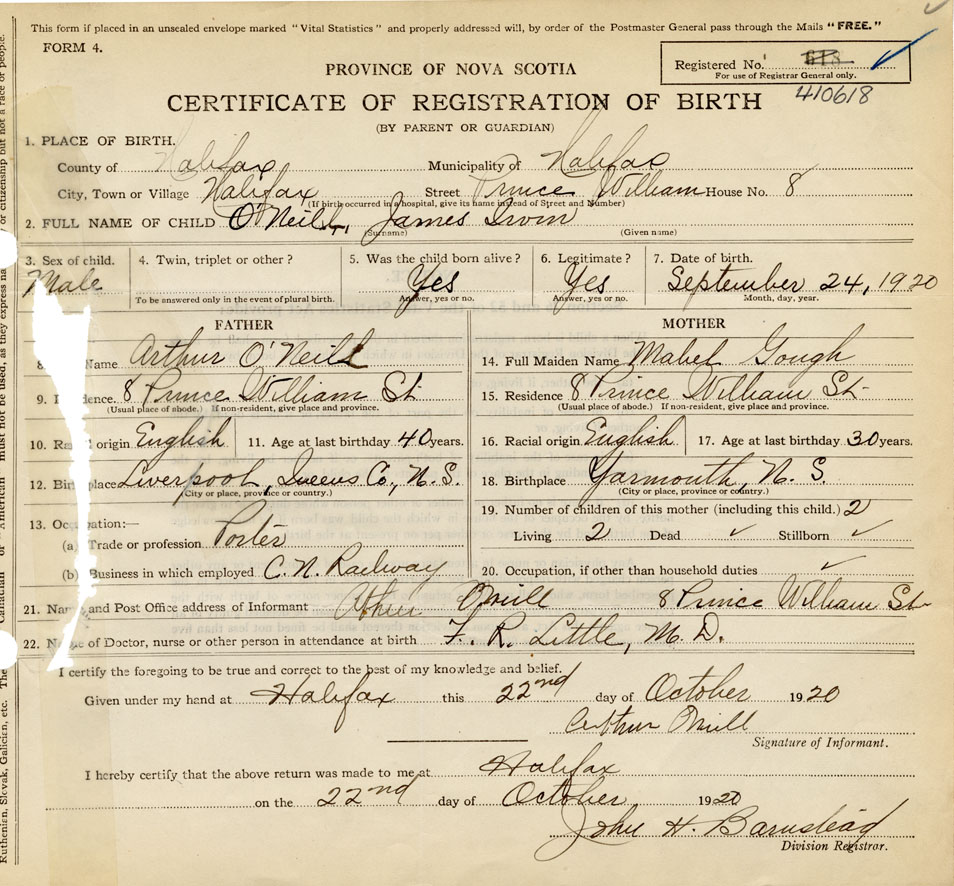 This form if placed in an unsealed envelope marked "Vital Statistics" and properly addressed will, by order of the Postmaster General pass through the Mails "FREE."
FORM 4.
Registered No. 618
For use of Registrar General only.
410618
PROVINCE OF NOVA SCOTIA
CERTIFICATE OF REGISTRATION OF BIRTH
(BY PARENT OR GUARDIAN)
1. PLACE OF BIRTH.
County of Halifax Municipality of Halifax
City, Town or Village Halifax Street Prince William House No. 8
(If birth occurred in a hospital, give its name instead of Street and Number)
2. FULL NAME OF CHILD O'Neill, James Irvin
(Surname) (Given name)
3. Sex of child. 4. Twin, triplet or other? 5. Was the child born alive? 6. Legitimate? 7. Date of birth.
Male Yes Yes September 24, 1920
To be answered only in the event of plural birth. Answer, yes or no. Answer, yes or no. Month, day, year.
FATHER
8. Name Arthur O'Neill
9. dence. 8 Prince William St
(Usual place of abode.) If non-resident, give place and province.
10. Ra l origin English 11. Age at last birthday 40 years.
12. Birt place Liverpool, Queens Co., N. S.
(City or place, province or country.)
13. Oc ation:—
(a) Trade or profession Porter
(b) Business in which employed C. N. Railway
MOTHER
14. Full Maiden Name Mabel Gough
15. Residence 8 Prince William St
(Usual place of abode.) If non-resident, give place and province.
16. Racial origin English 17. Age at last birthday 30 years.
18. Birthplace Yarmouth, N. S.
(City or place, province or country.)
19. Number of children of this mother (including this child.) 2
Living 2 Dead ✓ Stillborn ✓
20. Occupation, if other than household duties ✓
21. Nam and Post Office address of Informant Arthur Oneill 8 Prince William St
22. N e of Doctor, nurse or other person in attendance at birth F. R. Little, M. D.
I certify the foregoing to be true and correct to the best of my knowledge and belief.
Given under my hand at Halifax this 22nd day of October 1920
Arthur Oneill
Signature of Informant.
I hereby certify that the above return was made to me at Halifax
on the 22nd day of October 1920
John H. Barnstead
Division Registrar.